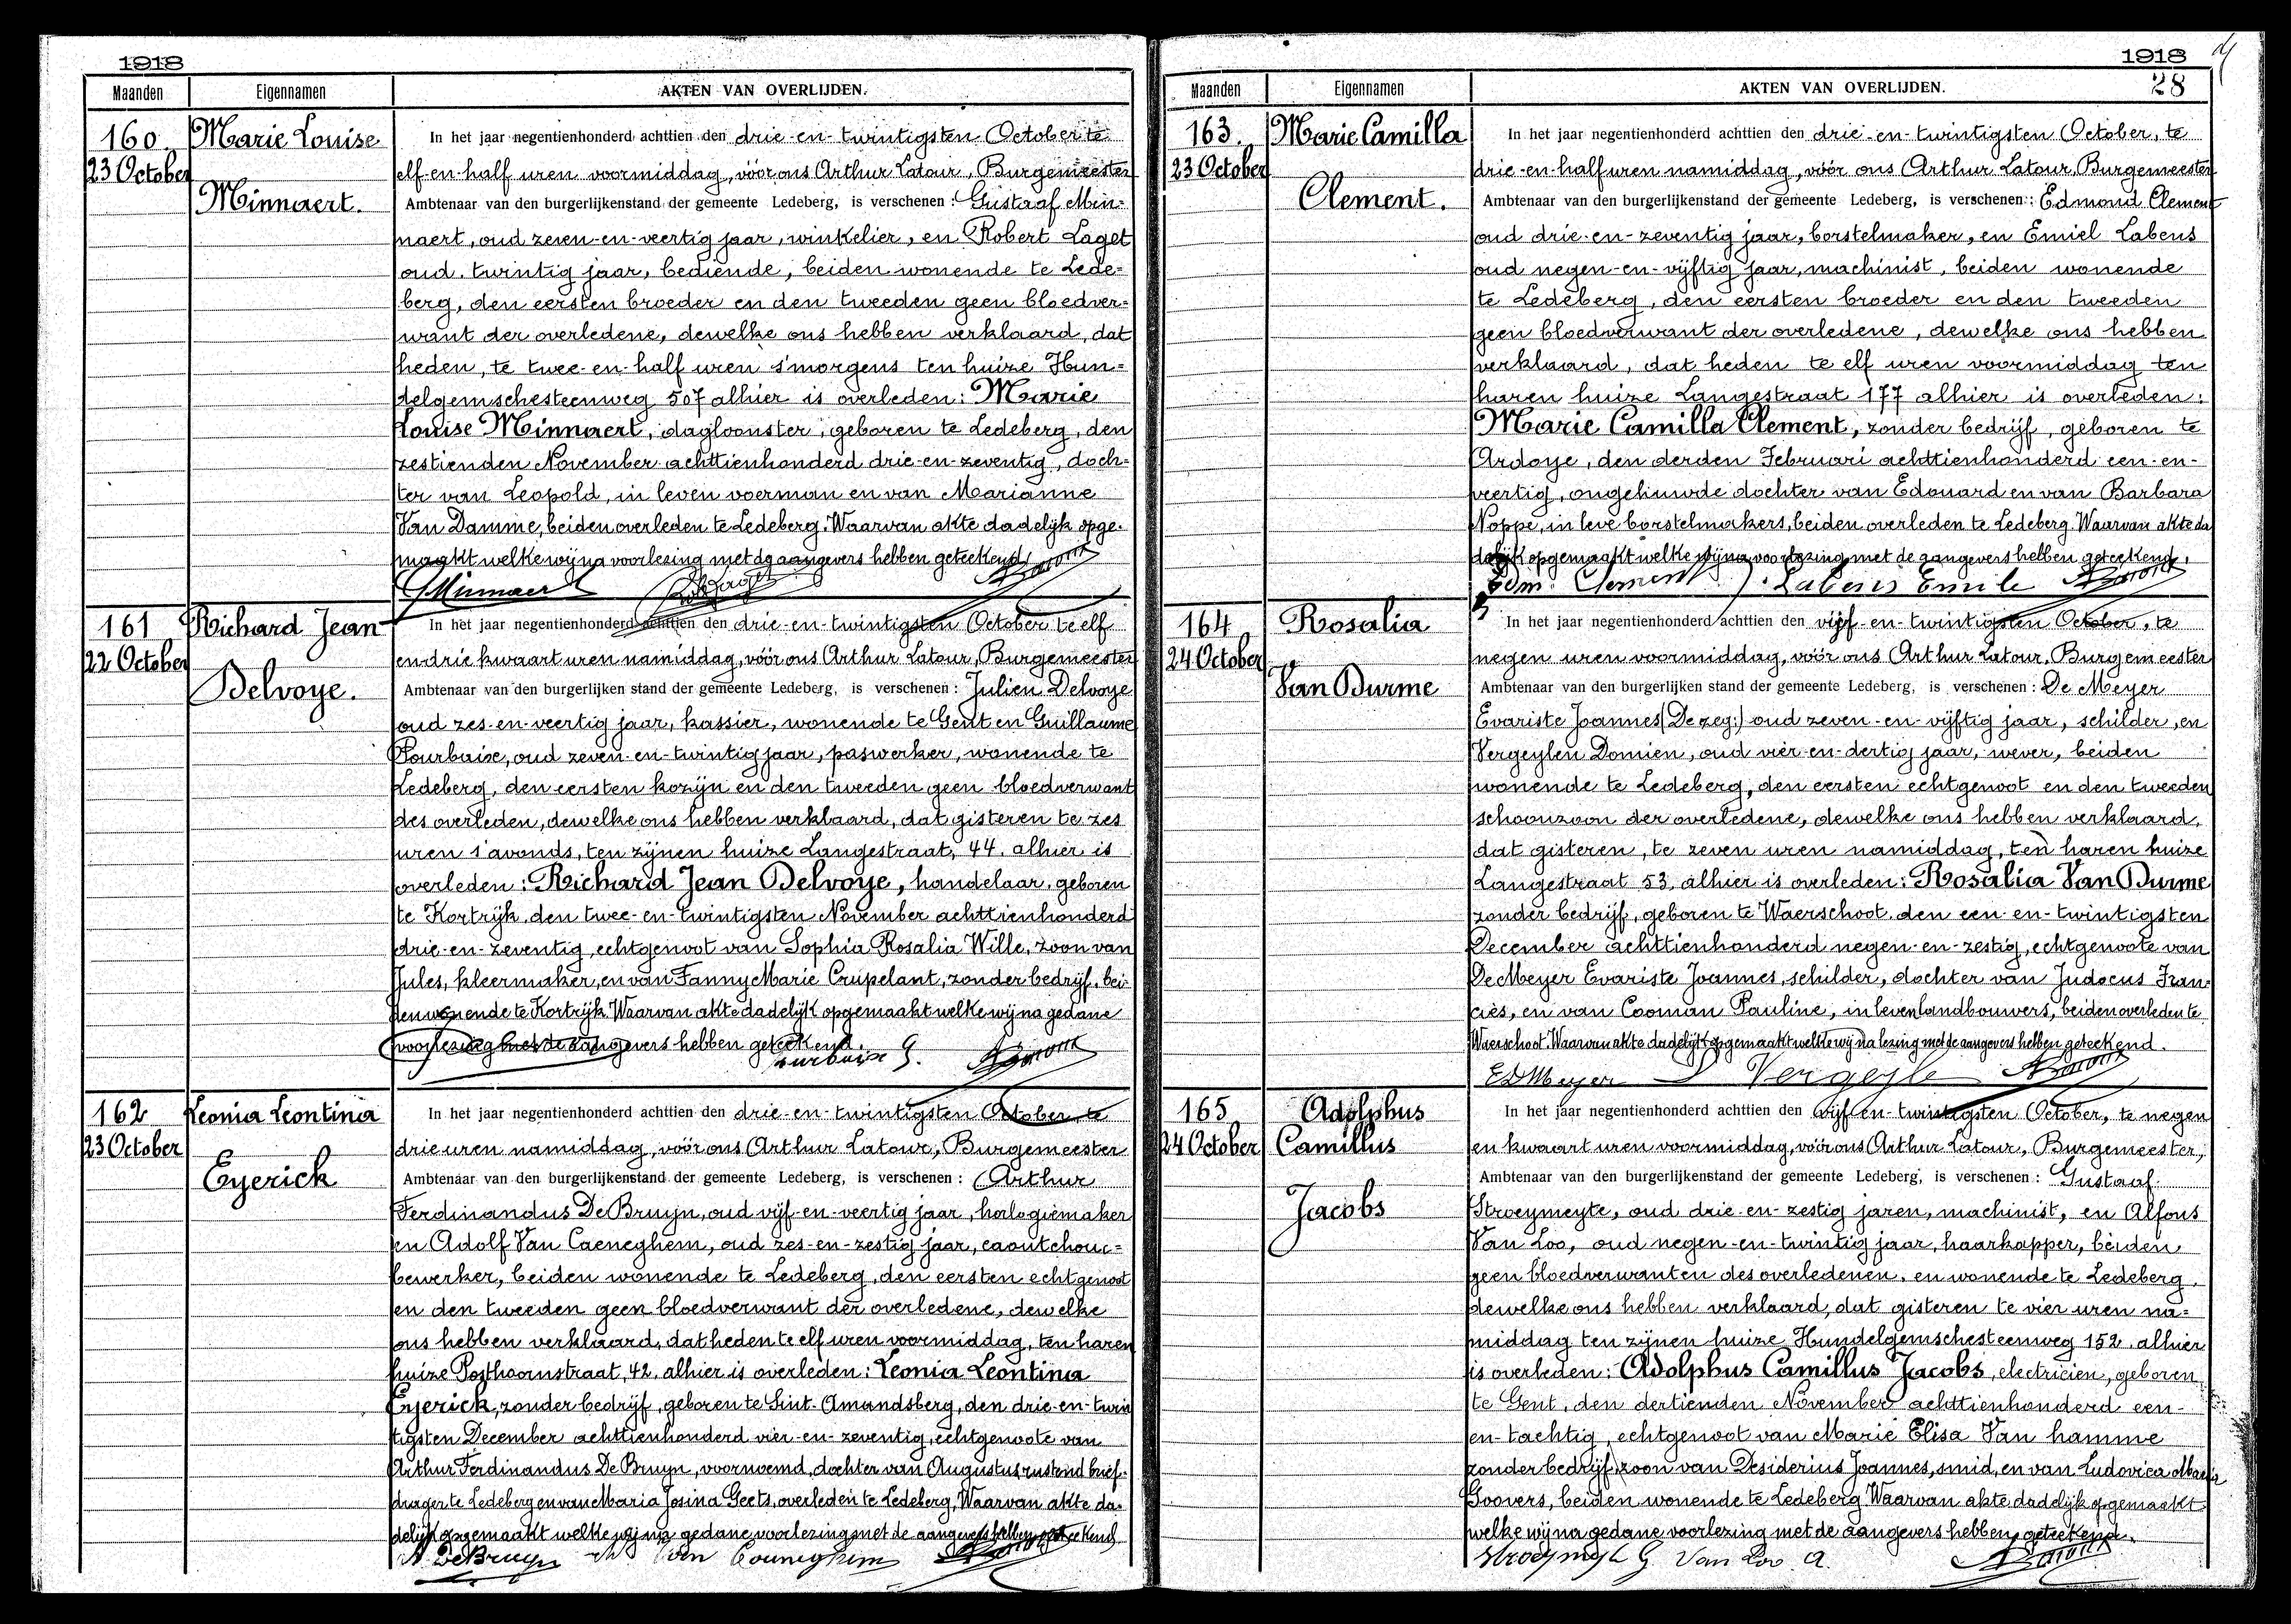 1918
Maanden Eigennamen AKTEN VAN OVERLIJDEN.
160. Marie Louise
23 October
Minnaert.
In het jaar negentienhonderd achttien den drie-en-twintigsten October te
elf-en-half uren voormiddag, vóór ons Arthur Latour, Burgemeester
Ambtenaar van den burgerlijkenstand der gemeente Ledeberg, is verschenen: Gustaaf Min=
naert, oud zeven-en-veertig jaar, winkelier, en Robert Laget
oud twintig jaar, bediende, beiden wonende te Lede=
berg, den eersten broeder en den tweeden geen bloedver=
want der overledene, dewelke ons hebben verklaard, dat
heden, te twee-en-half uren s'morgens ten huize Hun=
delgemschesteenweg 507 alhier is overleden: Marie
Louise Minnaert, dagloonster, geboren te Ledeberg, den
zestienden November achttienhonderd drie-en-zeventig, doch=
ter van Leopold, in leven voerman en van Marianne
Van Damme, beiden overleden te Ledeberg. Waarvan akte dadelijk opge=
maakt welke wij na voorlezing met de aangevers hebben geteekend.
Minnaert Laget
161 Richard Jean
22 October
Delvoye.
In het jaar negentienhonderd achttien den drie-en-twintigsten October te elf
en drie kwaart uren namiddag, vóór ons Arthur Latour, Burgemeester
Ambtenaar van den burgerlijken stand der gemeente Ledeberg, is verschenen: Julien Delvoye
oud zes-en-veertig jaar, kassier, wonende te Gent en Guillaume
Pourbaise, oud zeven-en-twintig jaar, paswerker, wonende te
Ledeberg, den eersten kozijn en den tweeden geen bloedverwant
des overleden, dewelke ons hebben verklaard, dat gisteren te zes
uren s'avonds, ten zijnen huize Langestraat, 44. alhier is
overleden: Richard Jean Delvoye, handelaar, geboren
te Kortrijk, den twee-en-twintigsten November achttienhonderd
drie-en-zeventig, echtgenoot van Sophia Rosalia Wille, zoon van
Jules, kleermaker, en van Fanny Marie Crupelant, zonder bedrijf, bei=
den wonende te Kortrijk. Waarvan akte dadelijk opgemaakt welke wij na gedane
voorlezing met de aangevers hebben geteekend.
162 Leonia Leontina
23 October
Eyerick
In het jaar negentienhonderd achttien den drie-en-twintigsten October te
drie uren namiddag, vóór ons Arthur Latour, Burgemeester
Ambtenaar van den burgerlijkenstand der gemeente Ledeberg, is verschenen: Arthur
Ferdinandus De Bruyn, oud vijf-en-veertig jaar, horlogiemaker
en Adolf Van Caeneghem, oud zes-en-zestig jaar, caoutchouc=
bewerker, beiden wonende te Ledeberg, den eersten echtgenoot
en den tweeden geen bloedverwant der overledene, dewelke
ons hebben verklaard, dat heden te elf uren voormiddag, ten haren
huize Posthoornstraat, 42. alhier is overleden: Leonia Leontina
Eyerick, zonder bedrijf, geboren te Sint-Amandsberg, den drie-en-twin
tigsten December achttienhonderd vier-en-zeventig, echtgenoote van
Arthur Ferdinandus De Bruyn, voornoemd, dochter van Augustus rustend brief=
drager te Ledeberg en van Maria Josina Geets, overleden te Ledeberg, Waarvan akte da=
delijk opgemaakt welke wij na gedane voorlezing met de aangevers hebben geteekend
A. De Bruyn
1918
28
Maanden Eigennamen AKTEN VAN OVERLIJDEN.
163. Marie Camilla
23 October
Clement.
In het jaar negentienhonderd achttien den drie-en-twintigsten October, te
drie-en-half uren namiddag, vóór ons Arthur Latour, Burgemeester
Ambtenaar van den burgerlijkenstand der gemeente Ledeberg, is verschenen: Edmond Clement
oud drie-en-zeventig jaar, borstelmaker, en Emiel Labens
oud negen-en-vijftig jaar, machinist, beiden wonende
te Ledeberg, den eersten broeder en den tweeden
geen bloedverwant der overledene, dewelke ons hebben
verklaard, dat heden te elf uren voormiddag ten
haren huize Langestraat 177 alhier is overleden:
Marie Camilla Clement, zonder bedrijf, geboren te
Ardoye, den derden Februari achttienhonderd een-en-
veertig, ongehuwde dochter van Edouard en van Barbara
Noppe, in leve borstelmakers, beiden overleden te Ledeberg. Waarvan akte da
delijk opgemaakt welke wij na voorlezing met de aangevers hebben geteekend.
Edm. Clement Labens Emile
164 Rosalia
24 October
Van Durme
In het jaar negentienhonderd achttien den vijf-en-twintigsten October, te
negen uren voormiddag, vóór ons Arthur Latour, Burgemeester
Ambtenaar van den burgerlijken stand der gemeente Ledeberg, is verschenen: De Meyer
Evariste Joannes (De zeg:) oud zeven-en-vijftig jaar, schilder, en
Vergeylen Domien, oud vier-en-dertig jaar, wever, beiden
wonende te Ledeberg, den eersten echtgenoot en den tweeden
schoonzoon der overledene, dewelke ons hebben verklaard,
dat gisteren, te zeven uren namiddag, ten haren huize
Langestraat 53, alhier is overleden: Rosalia Van Durme
zonder bedrijf, geboren te Waerschoot, den een-en-twintigsten
December achttienhonderd negen-en-zestig, echtgenoote van
De Meyer Evariste Joannes, schilder, dochter van Judocus Fran=
cies, en van Cooman Pauline, in leven landbouwers, beiden overleden te
Waerschoot. Waarvan akte dadelijk opgemaakt welke wij na lezing met de aangevers hebben geteekend.
E DMeyer D Vergeyle
165 Adolphus
24 October Camillus
Jacobs
In het jaar negentienhonderd achttien den vijf-en-twintigsten October, te negen
en kwaart uren voormiddag, vóór ons Arthur Latour, Burgemeester,
Ambtenaar van den burgerlijkenstand der gemeente Ledeberg, is verschenen: Gustaaf
Stroeymeyte, oud drie-en-zestig jaren, machinist, en Alfons
Van Loo, oud negen-en-twintig jaar, haarkapper, beiden
geen bloedverwanten des overledenen, en wonende te Ledeberg,
dewelke ons hebben verklaard, dat gisteren te vier uren na=
middag ten zijnen huize Hundelgemschesteenweg 152. alhier
is overleden: Adolphus Camillus Jacobs, electricien, geboren
te Gent, den dertienden November achttienhonderd een-
en-tachtig, echtgenoot van Marie Elisa Van hamme
zonder bedrijf, zoon van Desiderius Joannes, smid, en van Ludovica Maria
Goovers, beiden wonende te Ledeberg. Waarvan akte dadelijk opgemaakt
welke wij na gedane voorlezing met de aangevers hebben geteekend.
G. Van Loo A.